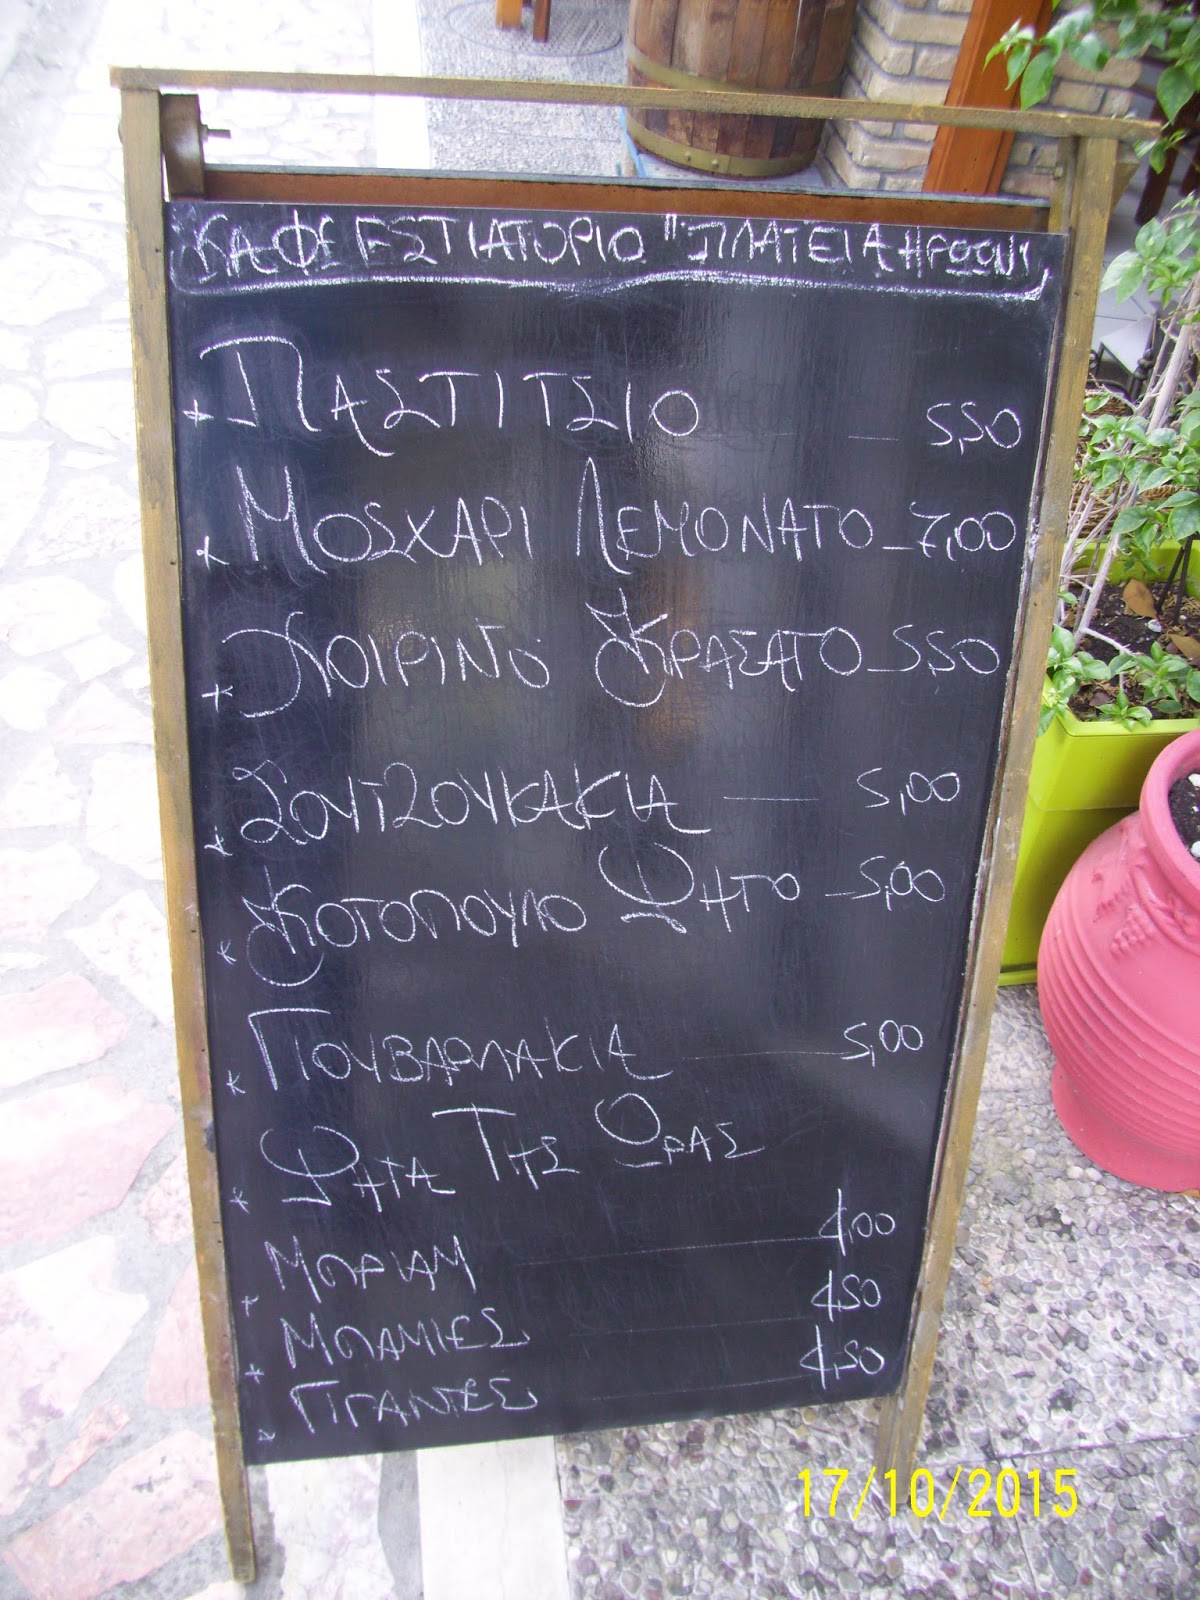 ΚΑΦΕ ΕΣΤΙΑΤΟΡΙΟ "ΠΛΑΤΕΙΑ ΗΡΩΩΝ"
* ΠΑΣΤΙΤΣΙΟ - - 5,50
* ΜΟSΧΑΡΙ ΛΕΜΟΝΑΤΟ - 7,00
* ΧΟΙΡΙΝΟ ΚΡΑΣΑΤΟ - 5,50
* ΣΟΥΤΖΟΥΚΑΚΙΑ - 5,00
* ΚΟΤΟΠΟΥΛΟ ΨΗΤΟ - 5,00
* ΓΙΟΥΒΑΡΛΑΚΙΑ - 5,00
* ΨΗΤΑ ΤΗΣ ΩΡΑΣ
* ΜΠΡΙΑΜ - 4,00
* ΜΠΑΜΙΕΣ - 4,50
* ΓΙΓΑΝΤΕΣ - 4,50
17/10/2015